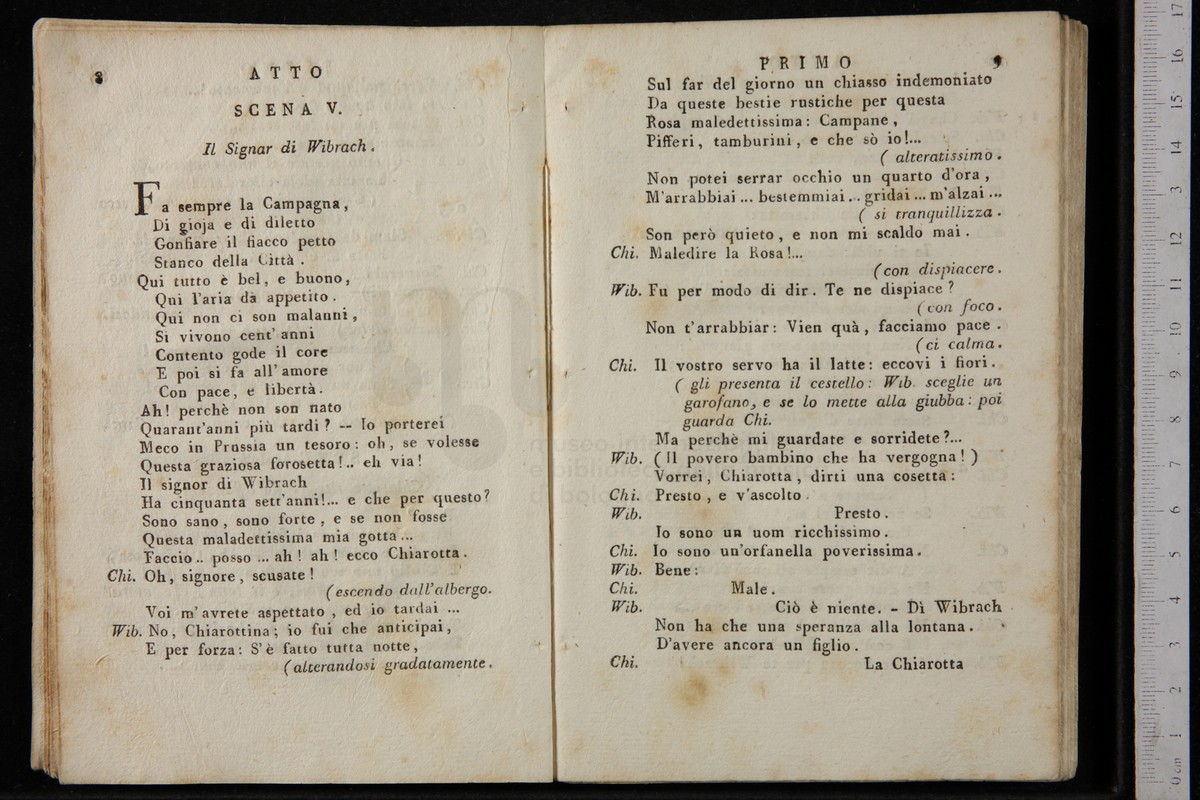 8
ATTO
SCENA V.
Il Signar di Wibrach.
Fa sempre la Campagna,
Di gioja e di diletto
Gonfiare il fiacco petto
Stanco della Città.
Qui tutto è bel, e buono,
Qui l'aria dà appetito.
Qui non ci son malanni,
Si vivono cent' anni
Contento gode il core
E poi si fa all' amore
Con pace, e libertà.
Ah! perchè non son nato
Quarant'anni più tardi? -- Io porterei
Meco in Prussia un tesoro: oh, se volesse
Questa graziosa forosetta!.. eh via!
Il signor di Wibrach
Ha cinquanta sett'anni!... e che per questo?
Sono sano, sono forte, e se non fosse
Questa maladettissima mia gotta...
Faccio.. posso ... ah! ah! ecco Chiarotta.
Chi. Oh, signore, scusate!
(escendo dall'albergo.
Voi m'avrete aspettato, ed io tardai ...
Wib. No, Chiarottina; io fui che anticipai,
E per forza: S'è fatto tutta notte,
(alterandosi gradatamente.
PRIMO
9
Sul far del giorno un chiasso indemoniato
Da queste bestie rustiche per questa
Rosa maledettissima: Campane,
Pifferi, tamburini, e che sò io!...
( alteratissimo.
Non potei serrar occhio un quarto d'ora,
M'arrabbiai ... bestemmiai... gridai ... m'alzai ...
( si tranquillizza.
Son però quieto, e non mi scaldo mai.
Chi. Maledire la Rosa!...
(con dispiacere.
Wib. Fu per modo di dir. Te ne dispiace?
(con foco.
Non t'arrabbiar: Vien quà, facciamo pace.
(ci calma.
Chi. Il vostro servo ha il latte: eccovi i fiori.
( gli presenta il cestello: Wib. sceglie un
garofano, e se lo mette alla giubba: poi
guarda Chi.
Ma perchè mi guardate e sorridete?...
Wib. (Il povero bambino che ha vergogna!)
Vorrei, Chiarotta, dirti una cosetta:
Chi. Presto, e v'ascolto.
Wib. Presto.
Io sono un uom ricchissimo.
Chi. Io sono un'orfanella poverissima.
Wib. Bene:
Chi. Male.
Wib. Ciò è niente. - Dì Wibrach
Non ha che una speranza alla lontana.
D'avere ancora un figlio.
Chi. La Chiarotta